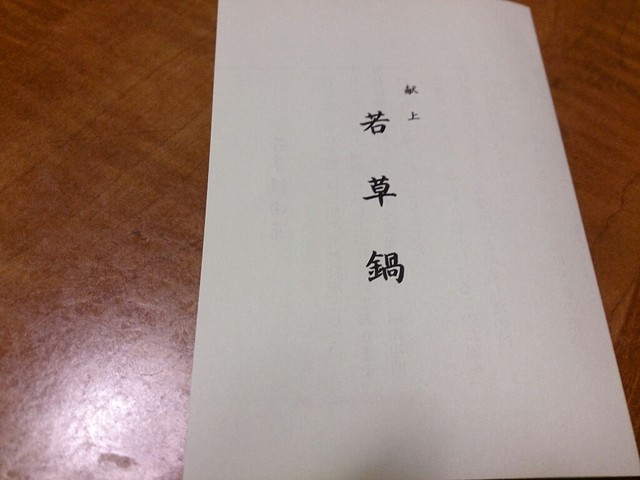 献上
若草鍋